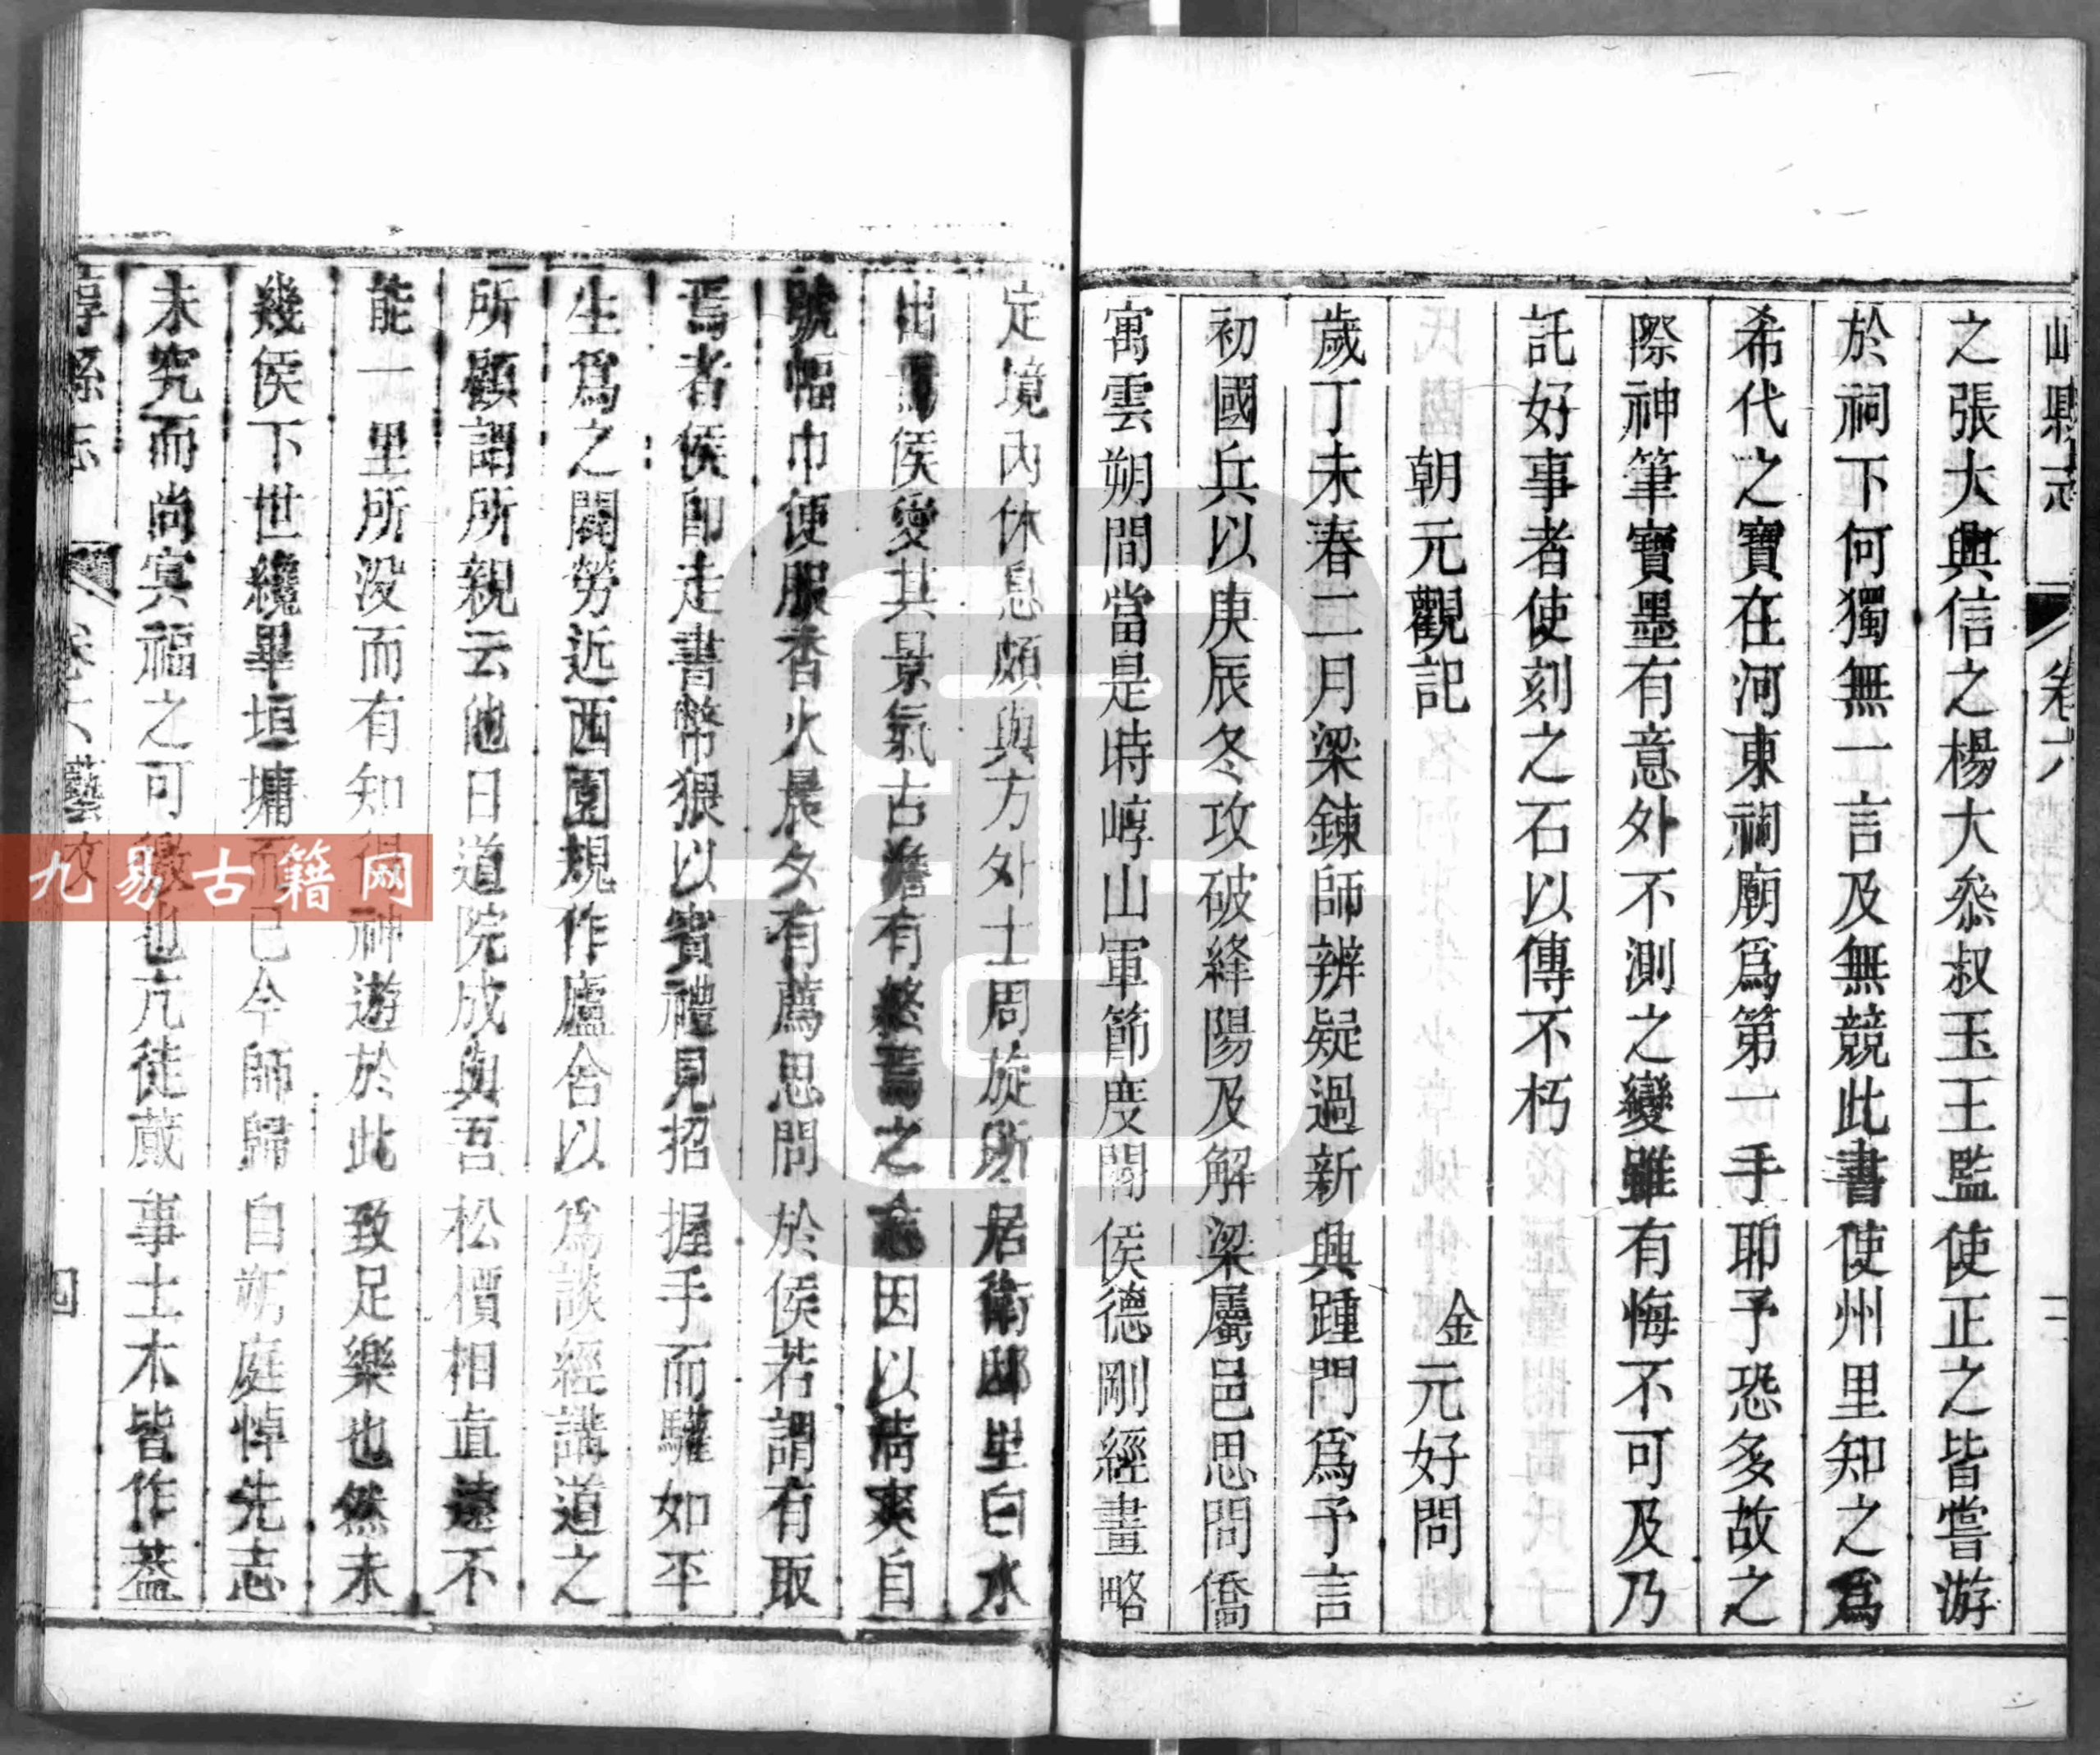 崞縣志 卷六 三
之張大興信之楊大叅叔玉王監使正之皆嘗游
於祠下何獨無一言及無競此書使州里知之爲
希代之寶在河東祠廟爲第一手耶予恐多故之
際神筆寶墨有意外不測之變雖有悔不可及乃
託好事者使刻之石以傳不朽
朝元觀記 金 元好問
歲丁未春二月梁鍊師辨疑過新興踵門爲予言
初國兵以庚辰冬攻破絳陽及解梁屬邑思問僑
寓雲朔間當是時崞山軍節度閻侯德剛經畫略
定境內休息頗與方外士周旋所居衛邸里白水
出焉侯愛其景氣古澹有終焉之志因以清爽自
號幅巾便服香火晨夕有薦思問於侯若謂有取
焉者侯即走書幣猥以賓禮見招握手而驩如平
生爲之闢勞近西園規作廬舍以爲談經講道之
所顧謂所親云他日道院成與吾松檟相直遠不
能一里所没而有知得神遊於此致足樂也然未
幾侯下世纔畢垣墉而已今師歸自朔庭悼先志
未究而尚冥福之可徼也亢徒蕆事土木皆作葢
崞縣志 卷六 藝文 四
九易古籍网